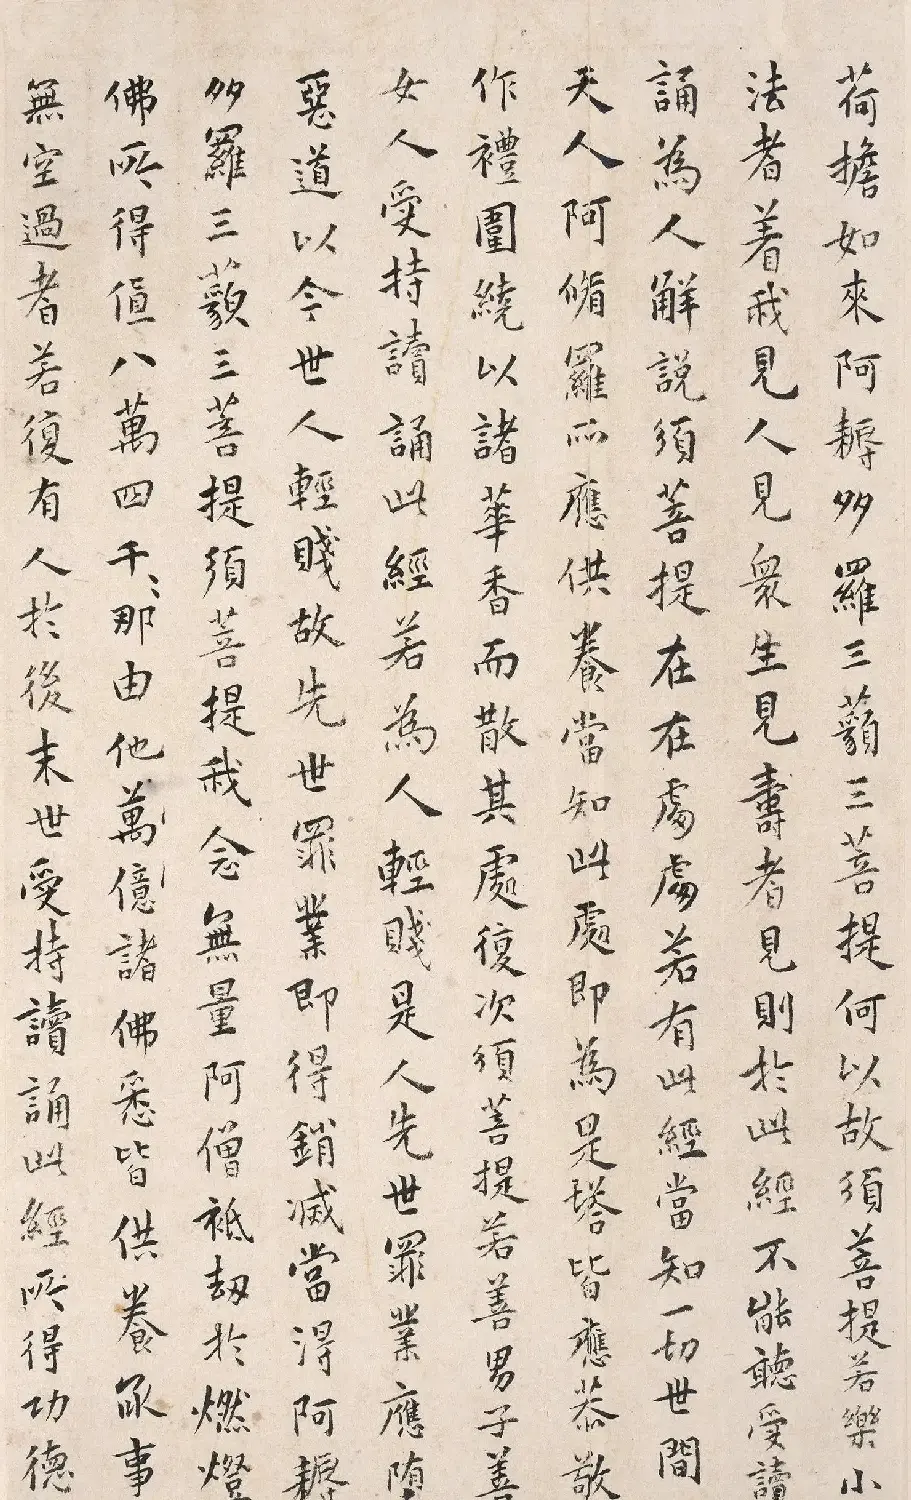 荷擔如來阿耨多羅三藐三菩提何以故須菩提若樂小
法者着我見人見眾生見壽者見則於此經不能聽受讀
誦為人解說須菩提在在處處若有此經當知一切世間
天人阿脩羅所應供養當知此處即為是塔皆應恭敬
作禮圍繞以諸華香而散其處復次須菩提若善男子善
女人受持讀誦此經若為人輕賤是人先世罪業應墮
惡道以今世人輕賤故先世罪業即得銷滅當得阿耨
多羅三藐三菩提須菩提我念無量阿僧祇劫於燃燈
佛所得值八萬四千、那由他萬億諸佛悉皆供養承事
無空過者若復有人於後末世受持讀誦此經所得功德